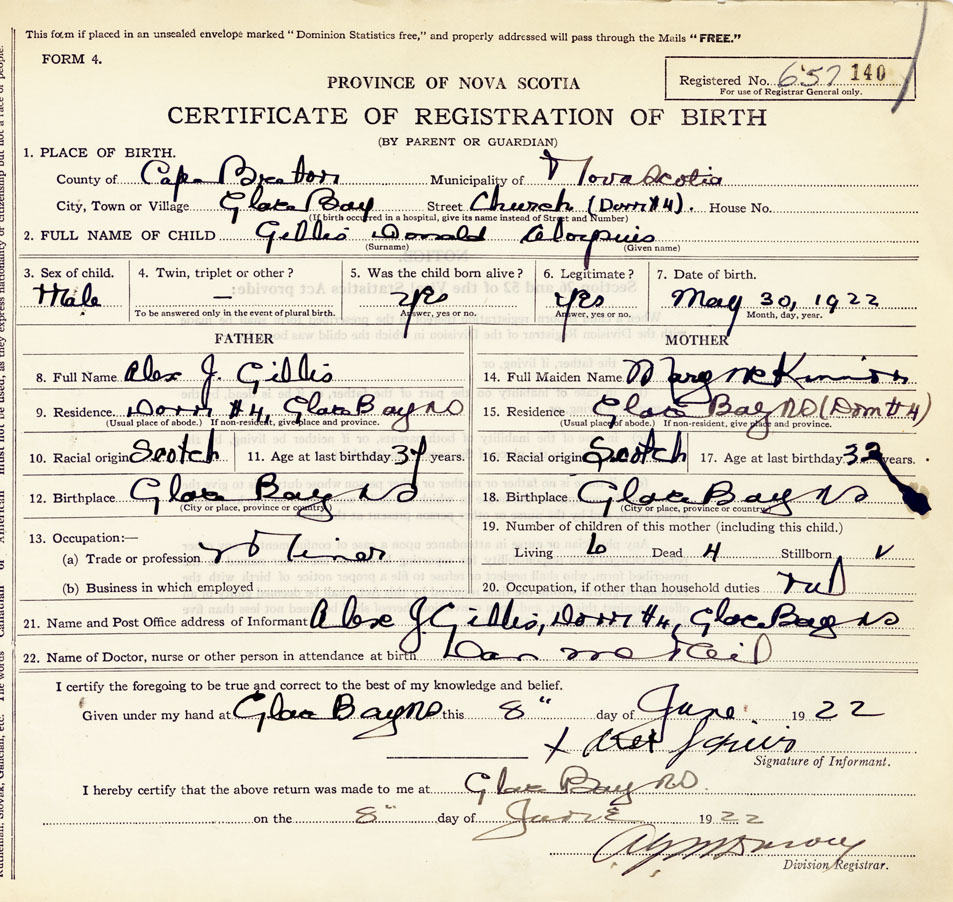 This form if placed in an unsealed envelope marked "Dominion Statistics free," and properly addressed will pass through the Mails "FREE."
FORM 4.
PROVINCE OF NOVA SCOTIA
Registered No. 657 140
For use of Registrar General only.
CERTIFICATE OF REGISTRATION OF BIRTH
(BY PARENT OR GUARDIAN)
1. PLACE OF BIRTH.
County of Cape Breton Municipality of Nova Scotia
City, Town or Village Glace Bay Street Church (Dom #4). House No.
(If birth occurred in a hospital, give its name instead of Street and Number)
2. FULL NAME OF CHILD Gillis Donald
(Surname) (Given name)
3. Sex of child. 4. Twin, triplet or other? 5. Was the child born alive? 6. Legitimate? 7. Date of birth.
Male — yes yes May 30, 1922
To be answered only in the event of plural birth. Answer, yes or no. Answer, yes or no. Month, day, year.
FATHER MOTHER
8. Full Name Alex J. Gillis 14. Full Maiden Name Mary McKinnon
9. Residence Dom #4, Glace Bay NS 15. Residence Glace Bay NS (Dom #4)
(Usual place of abode.) If non-resident, give place and province. (Usual place of abode.) If non-resident, give place and province.
10. Racial origin Scotch 11. Age at last birthday 37 years. 16. Racial origin Scotch 17. Age at last birthday 32 years.
12. Birthplace Glace Bay NS 18. Birthplace Glace Bay NS
(City or place, province or country) (City or place, province or country)
13. Occupation:— 19. Number of children of this mother (including this child.)
(a) Trade or profession Miner Living 6 Dead 4 Stillborn
(b) Business in which employed 20. Occupation, if other than household duties
21. Name and Post Office address of Informant Alex J. Gillis, Dom #4, Glace Bay NS
22. Name of Doctor, nurse or other person in attendance at birth Dan McNeil
I certify the foregoing to be true and correct to the best of my knowledge and belief.
Given under my hand at Glace Bay NS this 8" day of June 1922
X
Signature of Informant.
I hereby certify that the above return was made to me at Glace Bay NS.
on the 8" day of June 1922
Division Registrar.